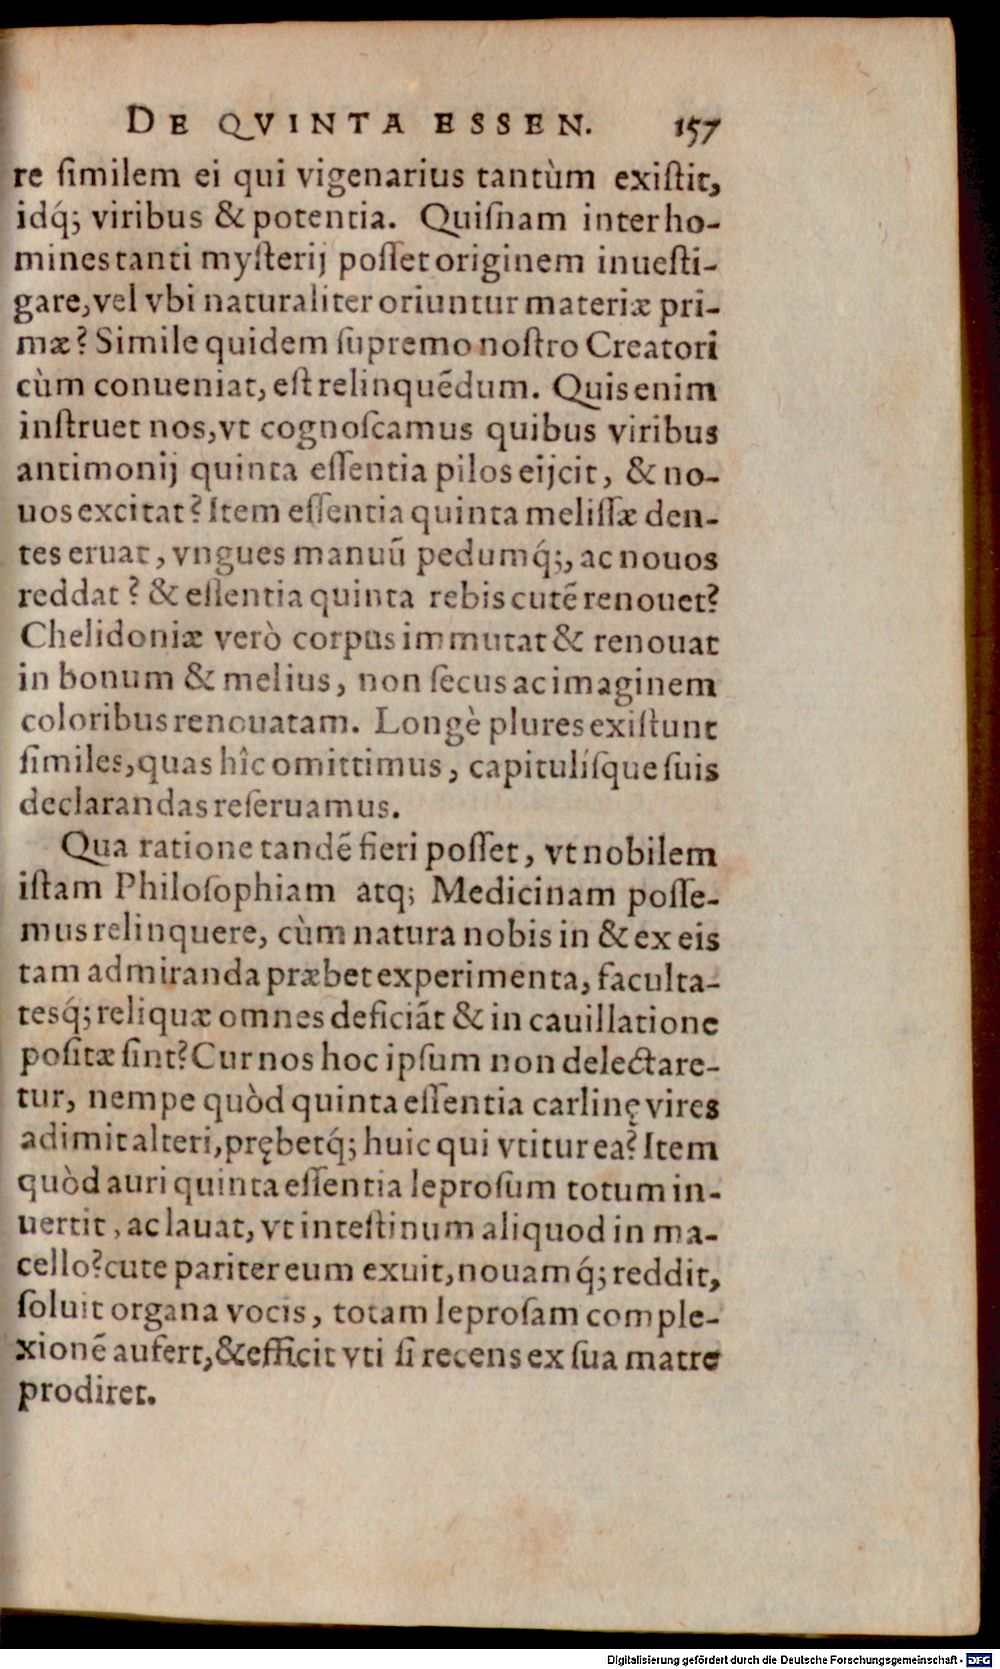 DE QVINTA ESSEN. 157
re ſimilem ei qui vigenarius tantùm exiſtit,
idq́; viribus & potentia. Quiſnam inter ho-
mines tanti myſterij poſſet originem inueſti-
gare, vel vbi naturaliter oriuntur materiæ pri-
mæ? Simile quidem ſupremo noſtro Creatori
cùm conueniat, eſt relinquēdum. Quis enim
inſtruet nos, vt cognoſcamus quibus viribus
antimonij quinta eſſentia pilos eijcit, & no-
uos excitat? Item eſſentia quinta meliſſæ den-
tes eruat, vngues manuū pedumq́;, ac nouos
reddat? & eſſentia quinta rebis cutē renouet?
Chelidoniæ verò corpus immutat & renouat
in bonum & melius, non ſecus ac imaginem
coloribus renouatam. Longè plures exiſtunt
ſimiles, quas hîc omittimus, capitulíſque ſuis
declarandas reſeruamus.
Qua ratione tandē fieri poſſet, vt nobilem
iſtam Philoſophiam atq; Medicinam poſſe-
mus relinquere, cùm natura nobis in & ex eis
tam admiranda præbet experimenta, faculta-
tesq́; reliquæ omnes deficiāt & in cauillatione
poſitæ ſint? Cur nos hoc ipſum non delectare-
tur, nempe quòd quinta eſſentia carlinę vires
adimit alteri, prębetq́; huic qui vtitur ea? Item
quòd auri quinta eſſentia leproſum totum in-
uertit, ac lauat, vt inteſtinum aliquod in ma-
cello? cute pariter eum exuit, nouamq́; reddit,
ſoluit organa vocis, totam leproſam comple-
xionē aufert, & efficit vti ſi recens ex ſua matre
prodiret.
Digitalisierung gefördert durch die Deutsche Forschungsgemeinschaft - DFG